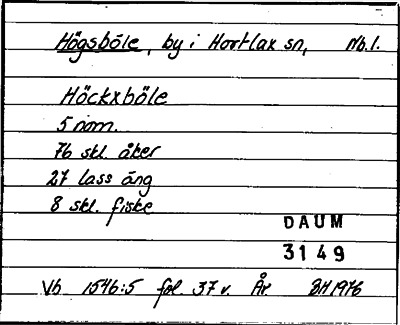 Högsböle, by i Hortlax sn, Nb.l.
Höckxböle
5 nom.
76 skl. åker
27 lass äng
8 skl. fiske
DAUM
3149
Vb 1546:5 fol. 37 v. År BH 1976